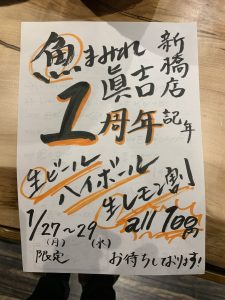 魚まみれ眞吉
新橋店
1周年記年
生ビール
ハイボール
生レモン割
all 100円
1/27(月)〜29(水)
限定
お待ちしております!